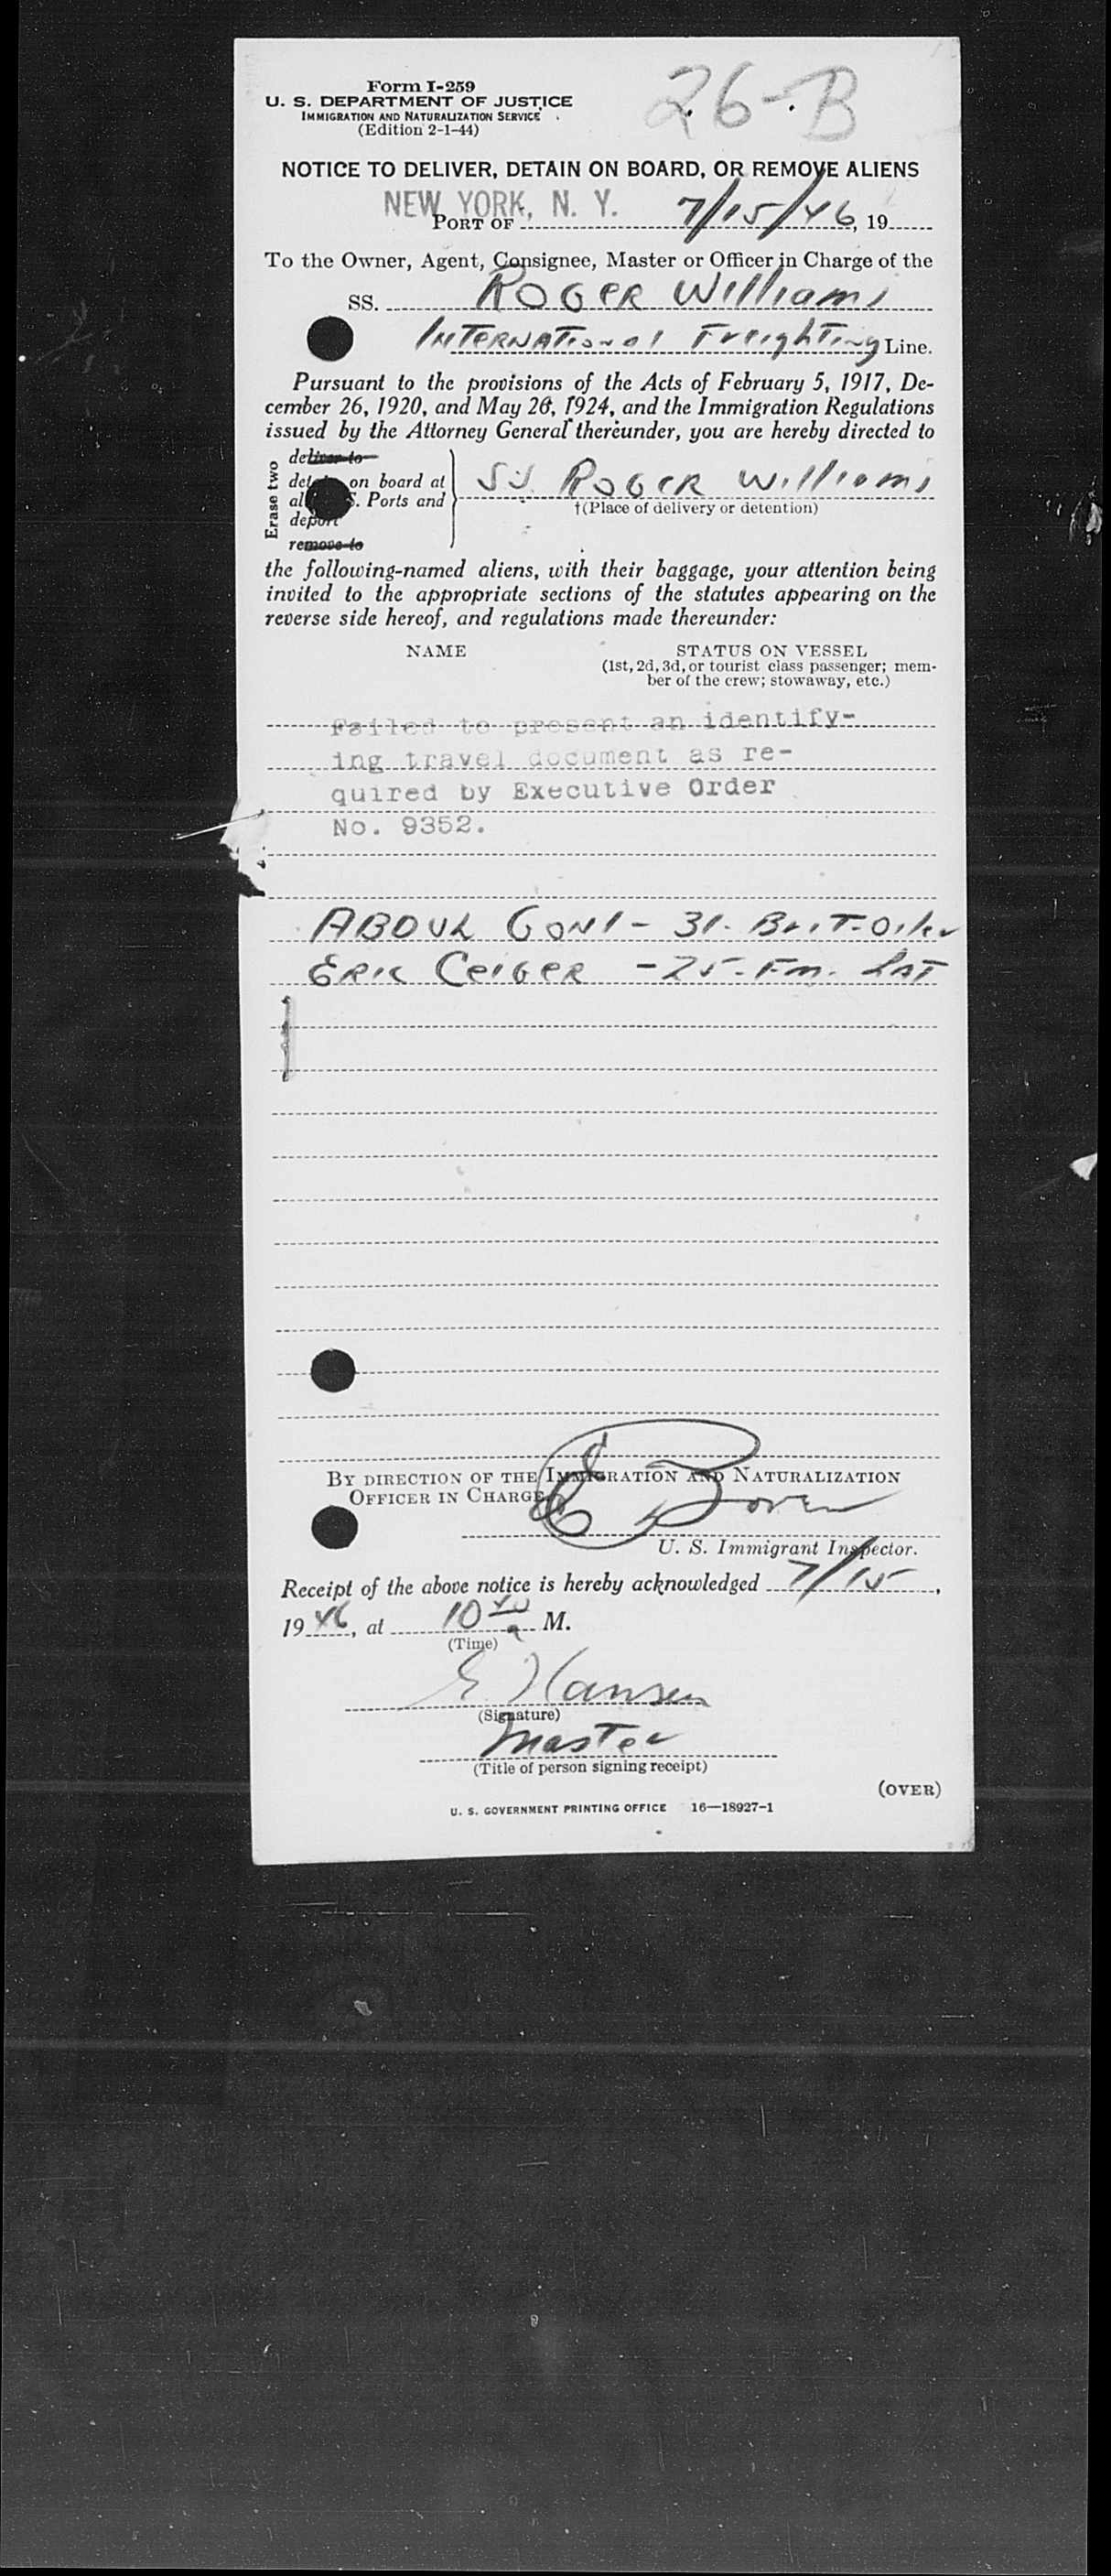 26-B
Form I-259
U. S. DEPARTMENT OF JUSTICE
IMMIGRATION AND NATURALIZATION SERVICE
(Edition 2-1-44)
NOTICE TO DELIVER, DETAIN ON BOARD, OR REMOVE ALIENS
NEW YORK, N. Y.
PORT OF 7/15/46, 19
To the Owner, Agent, Consignee, Master or Officer in Charge of the
SS. ROGER Williams
INTERNATIONAL Freighting Line.
Pursuant to the provisions of the Acts of February 5, 1917, De-
cember 26, 1920, and May 26, 1924, and the Immigration Regulations
issued by the Attorney General thereunder, you are hereby directed to
Erase two
deliver to
on board at SS. ROGER Williams
S. Ports and
†(Place of delivery or detention)
deport
remove to
the following-named aliens, with their baggage, your attention being
invited to the appropriate sections of the statutes appearing on the
reverse side hereof, and regulations made thereunder:
NAME STATUS ON VESSEL
(1st, 2d, 3d, or tourist class passenger; mem-
ber of the crew; stowaway, etc.)
Failed to present an identify-
ing travel document as re-
quired by Executive Order
No. 9352.
ABDUL GONI - 31. Brit-Oiler
ERIC CEIGER - 25- Fm. LAT
BY DIRECTION OF THE IMMIGRATION AND NATURALIZATION
OFFICER IN CHARGE
U. S. Immigrant Inspector.
Receipt of the above notice is hereby acknowledged 7/15,
1946, at 10 40 a M.
(Time)
E. Hansen
(Signature)
Master
(Title of person signing receipt)
(OVER)
U. S. GOVERNMENT PRINTING OFFICE 16—18927-1